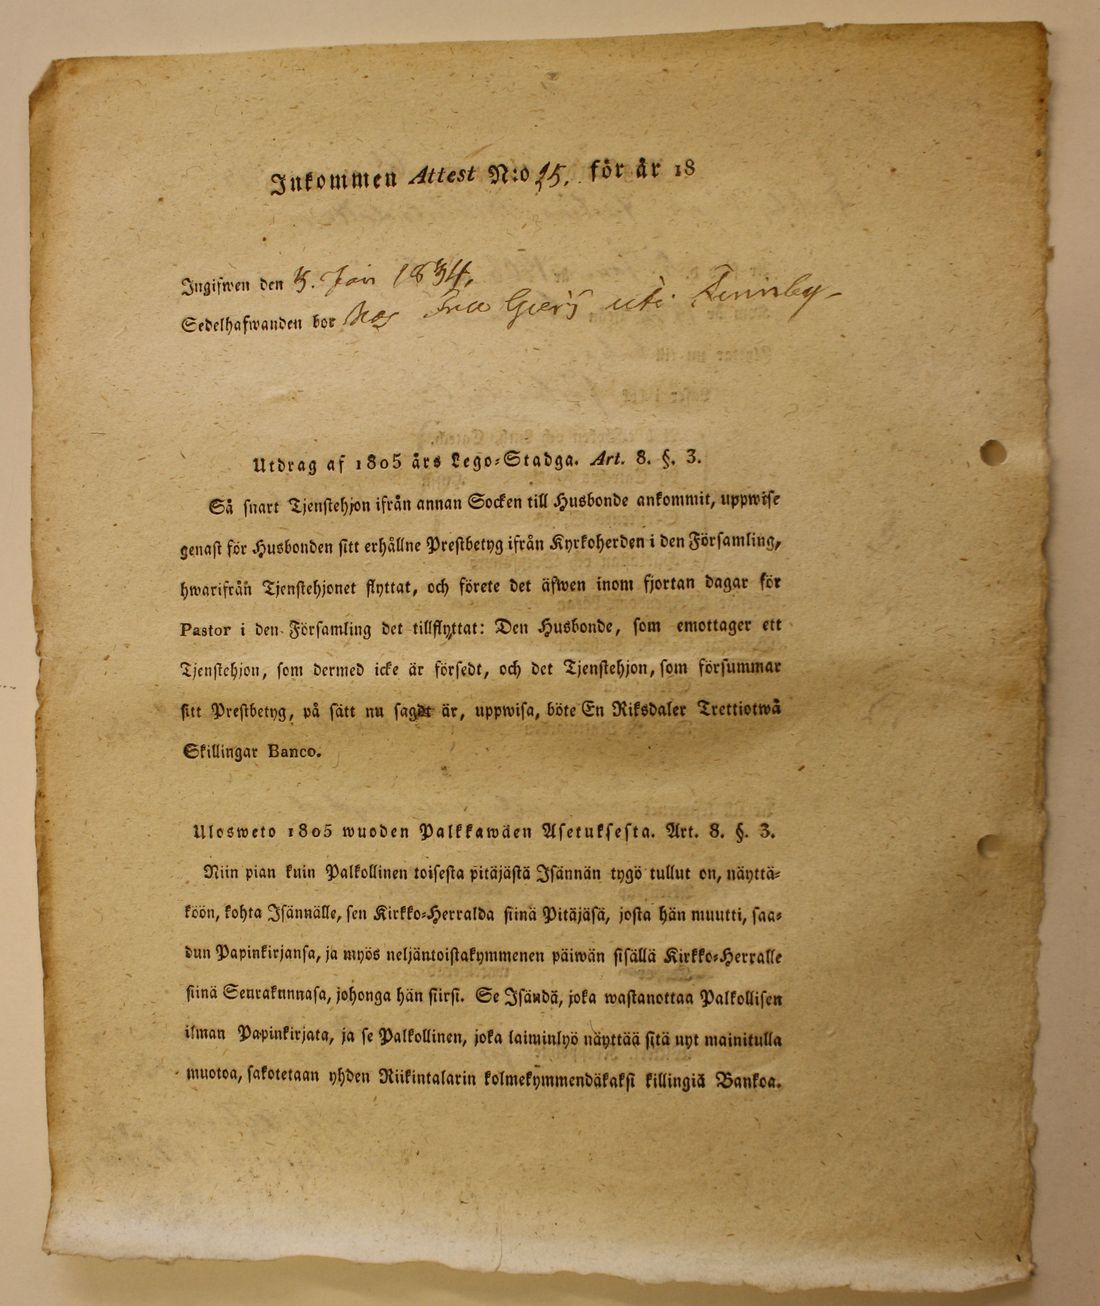 Inkommen Attest N:o 25. för år 18
Ingifwen den 3. Jan 1834.
Sedelhafwanden bor hos Fru uti
Utdrag af 1805 års Lego-Stadga. Art. 8. §. 3.
Så snart Tjenstehjon ifrån annan Socken till Husbonde ankommit, uppwise
genast för Husbonden sitt erhållne Prestbetyg ifrån Kyrkoherden i den Församling,
hwarifrån Tjenstehjonet flyttat, och förete det äfwen inom fjortan dagar för
Pastor i den Församling det tillflyttat: Den Husbonde, som emottager ett
Tjenstehjon, som dermed icke är försedt, och det Tjenstehjon, som försummar
sitt Prestbetyg, på sätt nu sagdt är, uppwisa, böte En Riksdaler Trettiotwå
Skillingar Banco.
Ulosweto 1805 wuoden Palkkawäen Asetuksesta. Art. 8. §. 3.
Niin pian kuin Palkollinen toisesta pitäjästä Isännän tygö tullut on, näyttä-
köön, kohta Isännälle, sen Kirkko-Herralda siinä Pitäjäsä, josta hän muutti, saa-
dun Papinkirjansa, ja myös neljäntoistakymmenen päiwän sisällä Kirkko-Herralle
siinä Seurakunnasa, johonga hän siirsi. Se Isändä, joka wastanottaa Palkollisen
ilman Papinkirjata, ja se Palkollinen, joka laiminlyö näyttää sitä nyt mainitulla
muotoa, sakotetaan yhden Riikintalarin kolmekymmendäkaksi killingiä Bankoa.